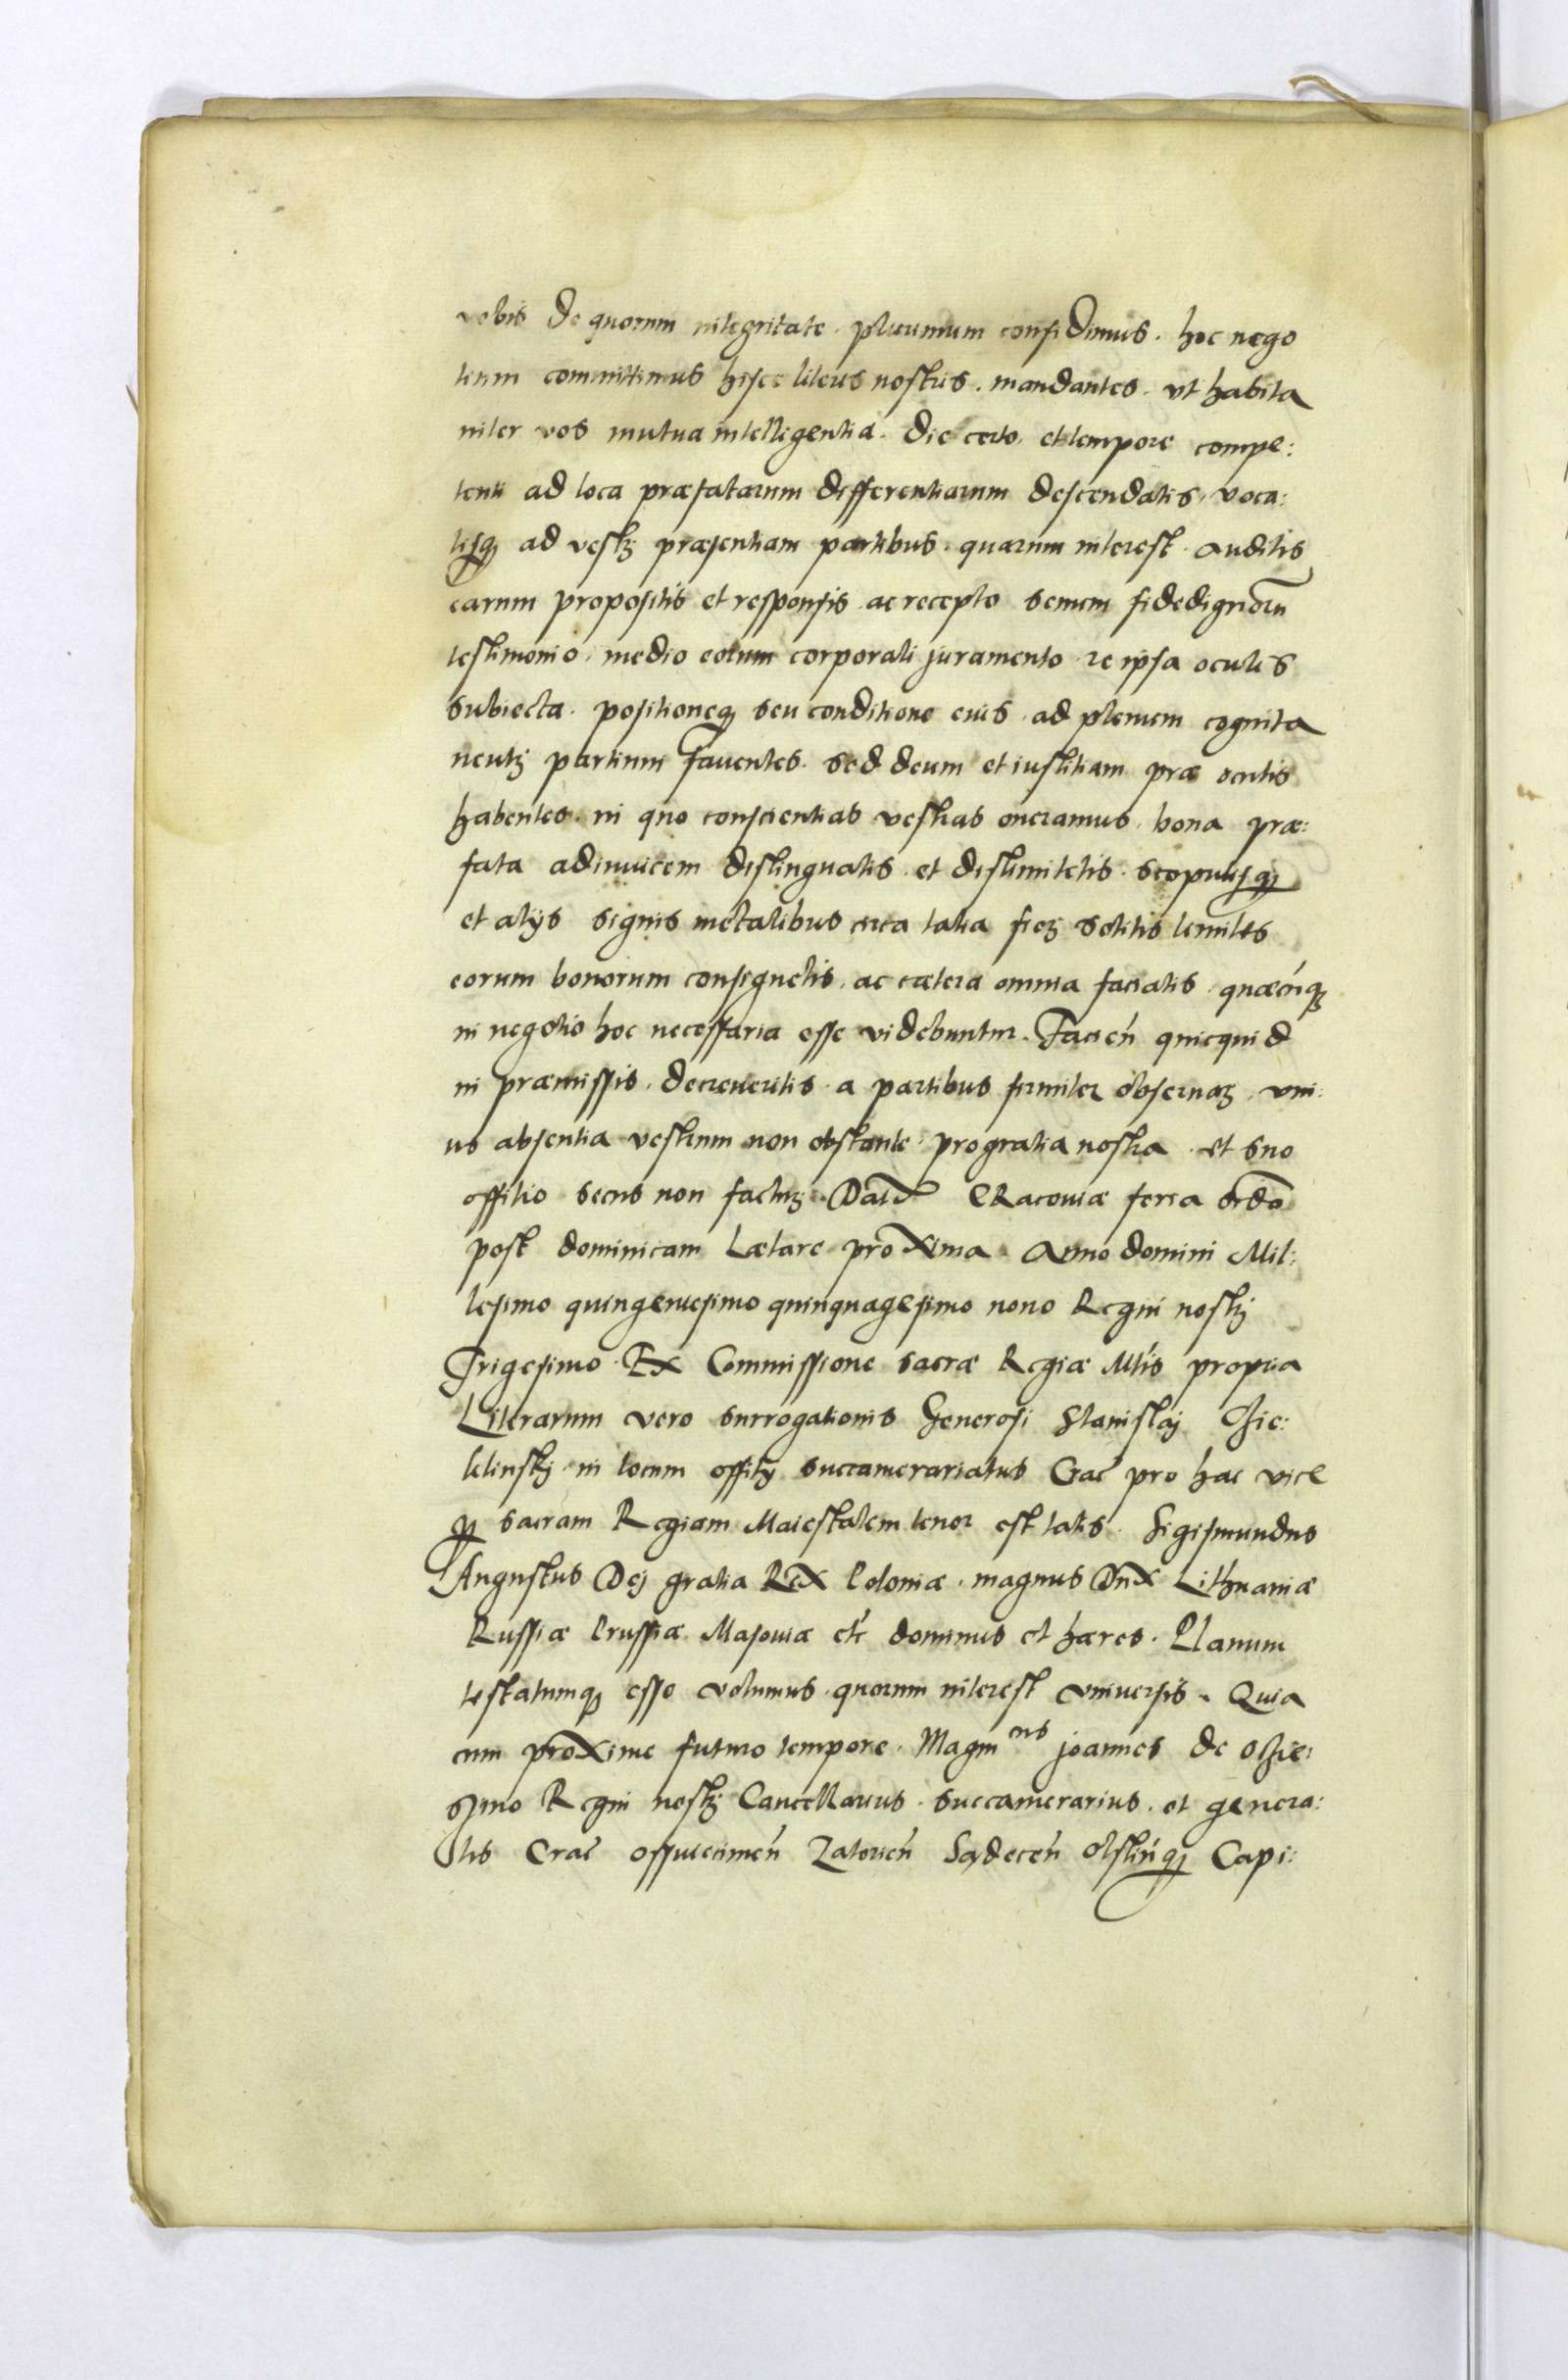 vobis de quorum integritate plurimum confidimus. hoc nego
tium committimus hisce literis nostris. mandantes. vt habita
inter vos mutua intelligentia. die certo. et tempore compe:
tenti ad loca præfatarum differentiarum descendatis, voca:
tisq3 ad vestrã præsentiam partibus. quarum interest. auditis
earum propositis et responsis ac recepto senum fidedignorũ
testimonio. medio eorum corporali juramento re ipsa oculis
subiecta. positioneq3 seu conditione eius. ad plenum cognita
neutri partium fauentes. sed deum et iustitiam præ oculis
habentes. in quo conscientias vestras oneramus. bona præ:
fata adinuicem distinguatis. et dislimitetis. scopulisq3
et alijs signis metalibus circa talia fierj solitis limites
eorum bonorum consignetis. ac cætera omnia faciatis. quæcũq3
in negotio hoc necessaria esse videbuntur. Facieñ quicquid
in præmissis. decreueritis. a partibus firmiter obseruarj. vni:
us absentia vestrum non obstante. pro gratia nostra. et suo
offitio secus non facturj. Datũ CRacouiæ feria
post dominicam Lætare proxima. Anno domini Mil:
lesimo quingentesimo quinquagesimo nono Regni nostrj
Trigesimo. Ex Commissione sacræ Regiæ Mtis propria
Literarum vero surrogationis Generosi Stanislaj
in locum offitij succamerariatus Crac̃ pro hac vice
p sacram Regiam Maiestatem tenor est talis. Sigismundus
Augustus Dej gratia Rex Poloniæ. magnus Dux Lithuaniæ
Russiæ Prussiæ Masouiæ etc̃ dominus et hæres. Planum
testatumq3 esse volumus. quorum interest vniuersis. Quia
cum proxime futuro tempore. Magnicus joannes de Oczie:
szyno Regni nostrj Cancellarius. succamerarius. et genera:
lis Crac̃ ossuiecimeñ Zatorieñ Sądeceñ Olstinq3 Capi: